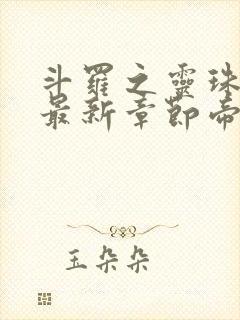 斗羅之靈珠
最新章節帝
玉朵朵